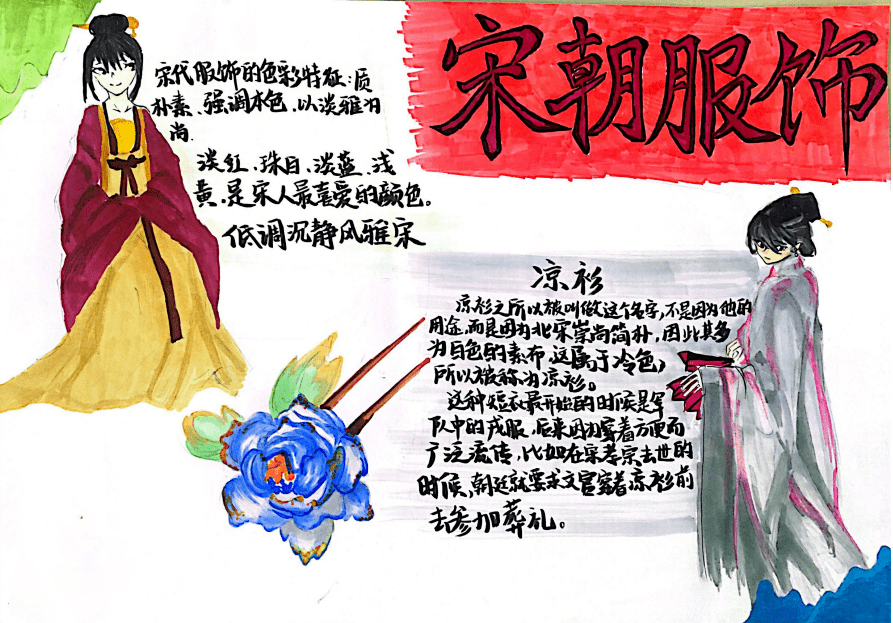 宋朝服饰
宋代服饰的色彩特征:质
朴素、强调本色、以淡雅为
尚.
淡红、珠白、淡蓝、浅
黄.是宋人最喜爱的颜色。
低调沉静风雅宋
凉衫
凉衫之所以被叫做这个名字,不是因为他的
用途.而是因为北宋崇尚简朴,因此其多
为白色的素布.这属于冷色,
所以被称为凉衫。
这种短衣最开始的时候是军
队中的戎服.后来因为穿着方便而
广泛流传,比如在宋孝宗去世的
时候,朝廷就要求文官穿着凉衫前
去参加葬礼。